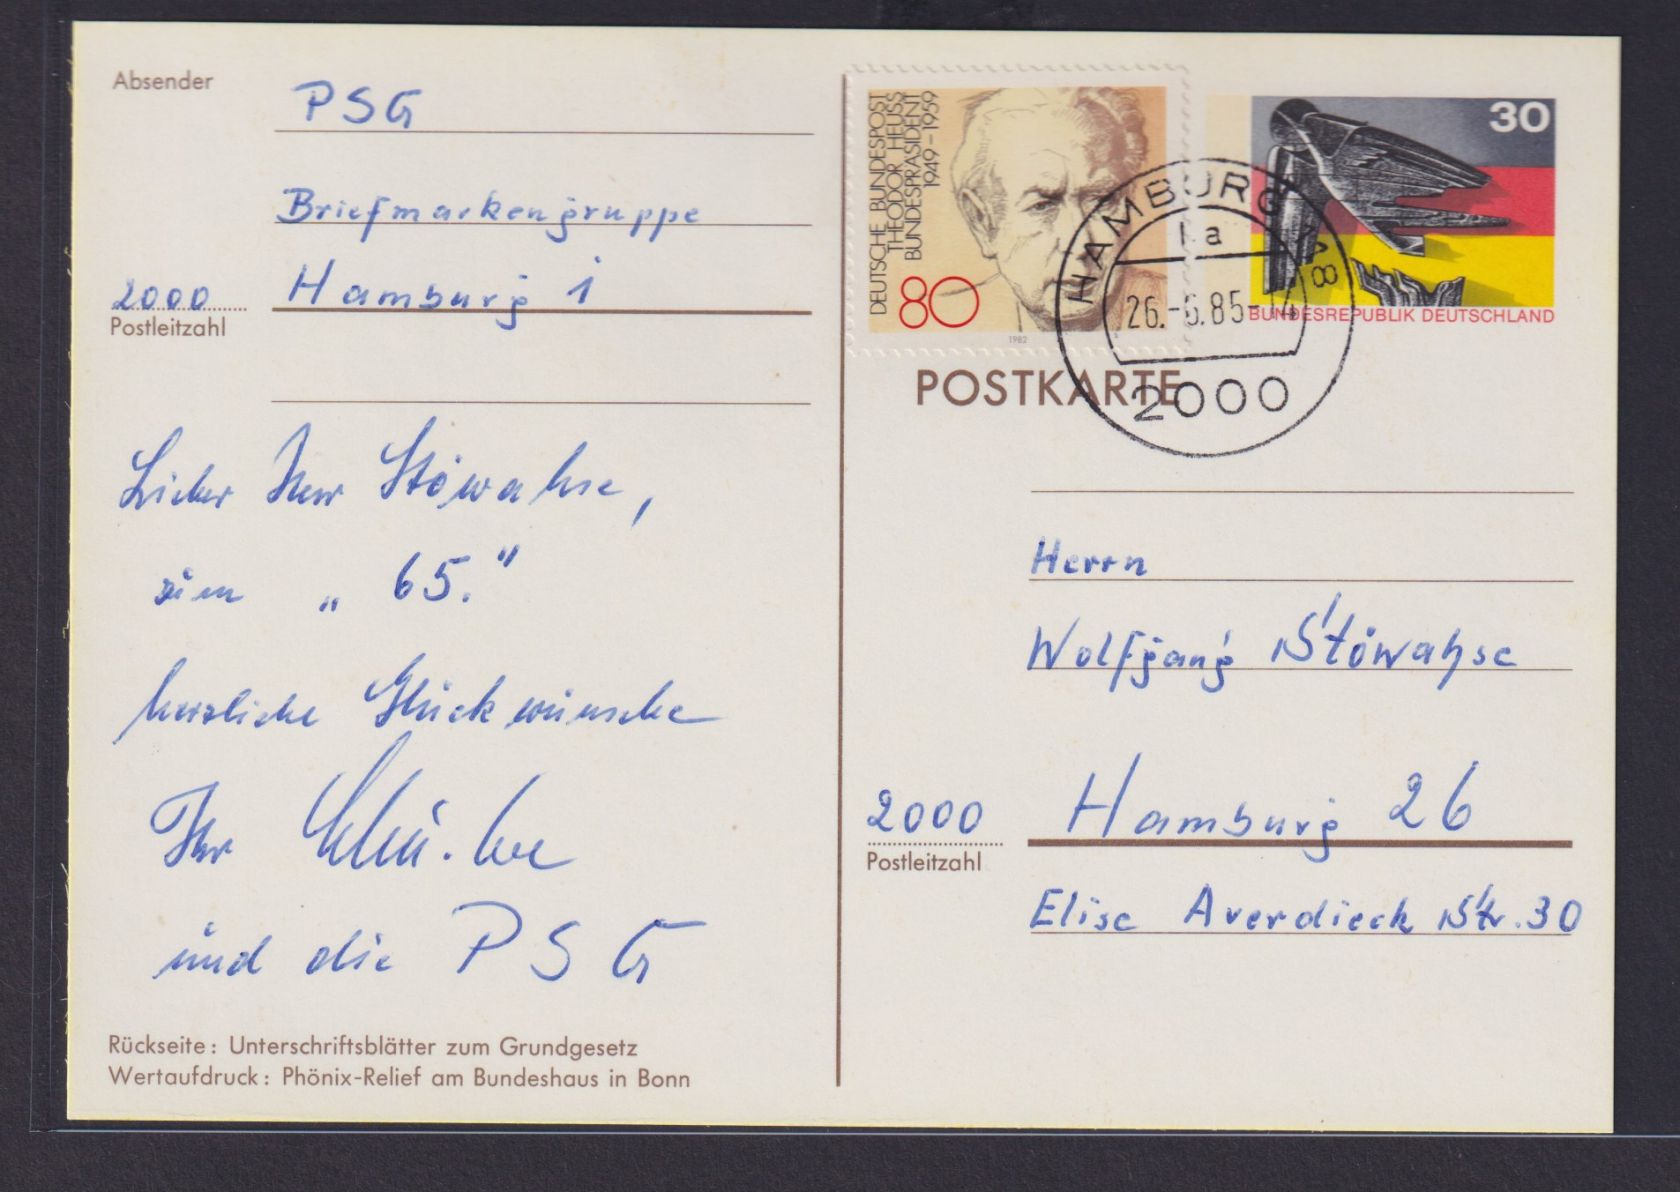 Absender
PSG
Briefmarkengruppe
2000 Hamburg 1
Postleitzahl
Lieber Herr Stöwahse,
zum „65."
herzliche Glückwünsche
Ihr
und die PSG
Rückseite: Unterschriftsblätter zum Grundgesetz
Wertaufdruck: Phönix-Relief am Bundeshaus in Bonn
DEUTSCHE BUNDESPOST
THEODOR HEUSS
BUNDESPRÄSIDENT
1949–1959
80
1982
30
BUNDESREPUBLIK DEUTSCHLAND
HAMBURG
26.-6.85-
2000
POSTKARTE
Herrn
Wolfgang Stöwahse
2000 Hamburg 26
Postleitzahl
Elise Averdieck Str. 30